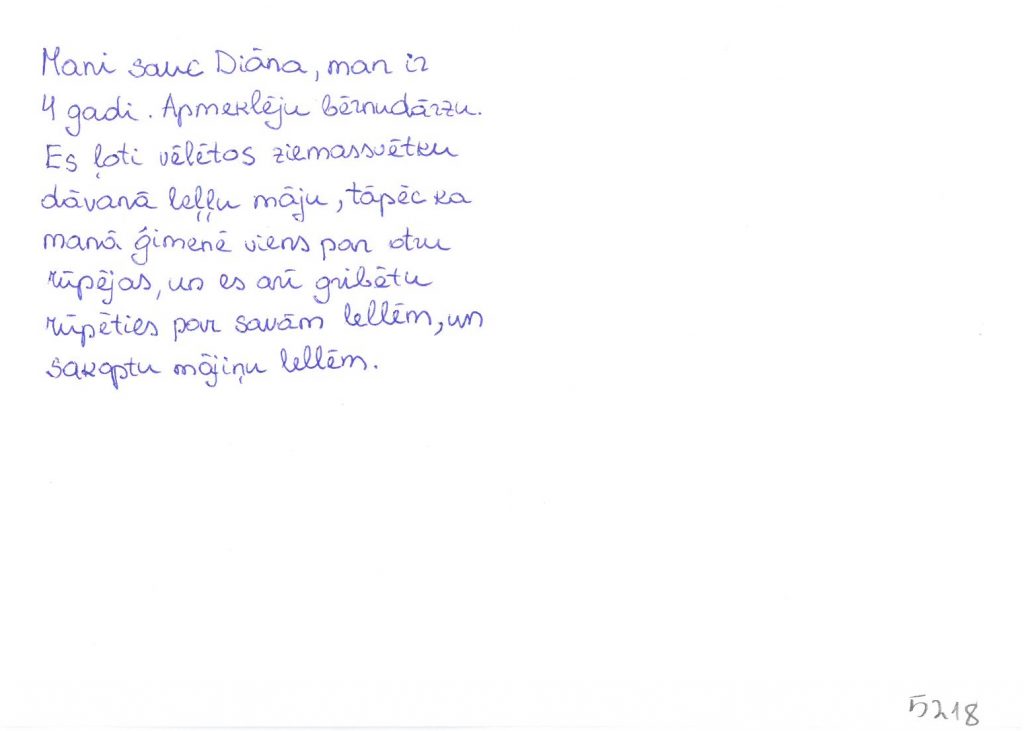 Mani sauc Diāna, man ir
4 gadi. Apmeklēju bērnudārzu.
Es ļoti vēlētos ziemassvētku
dāvanā leļļu māju, tāpēc ka
manā ģimenē viens par otru
rūpējas, un es arī gribētu
rūpēties par savām lellēm, un
sakoptu mājiņu lellēm.
5218